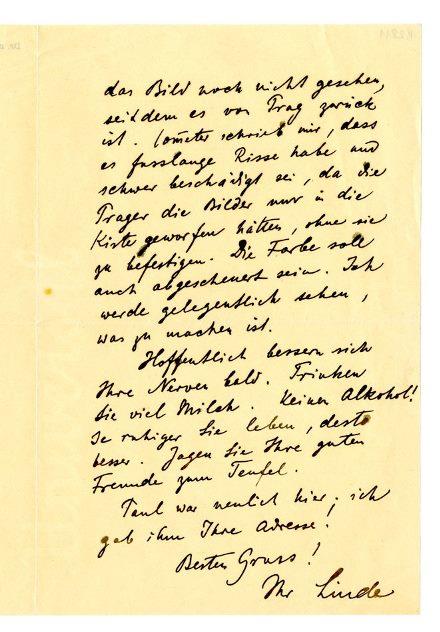 das Bild noch nicht gesehen,
seitdem es von Prag zurück
ist. Cometer schrieb mir, dass
es fusslange Risse habe und
schwer beschädigt sei, da die
Träger die Bilder nur in die
Kiste geworfen hätten, ohne sie
zu befestigen. Die Farbe soll
auch abgescheuert sein. Ich
werde gelegentlich sehen,
was zu machen ist.
Hoffentlich bessern sich
Ihre Nerven bald. Trinken
Sie viel Milch. Keinen Alkohol!
Je ruhiger Sie leben, desto
besser. Jagen Sie Ihre guten
Freunde zum Teufel.
Paul war neulich hier; ich
gab ihm Ihre Adresse.
Besten Gruss!
Ihr Linde